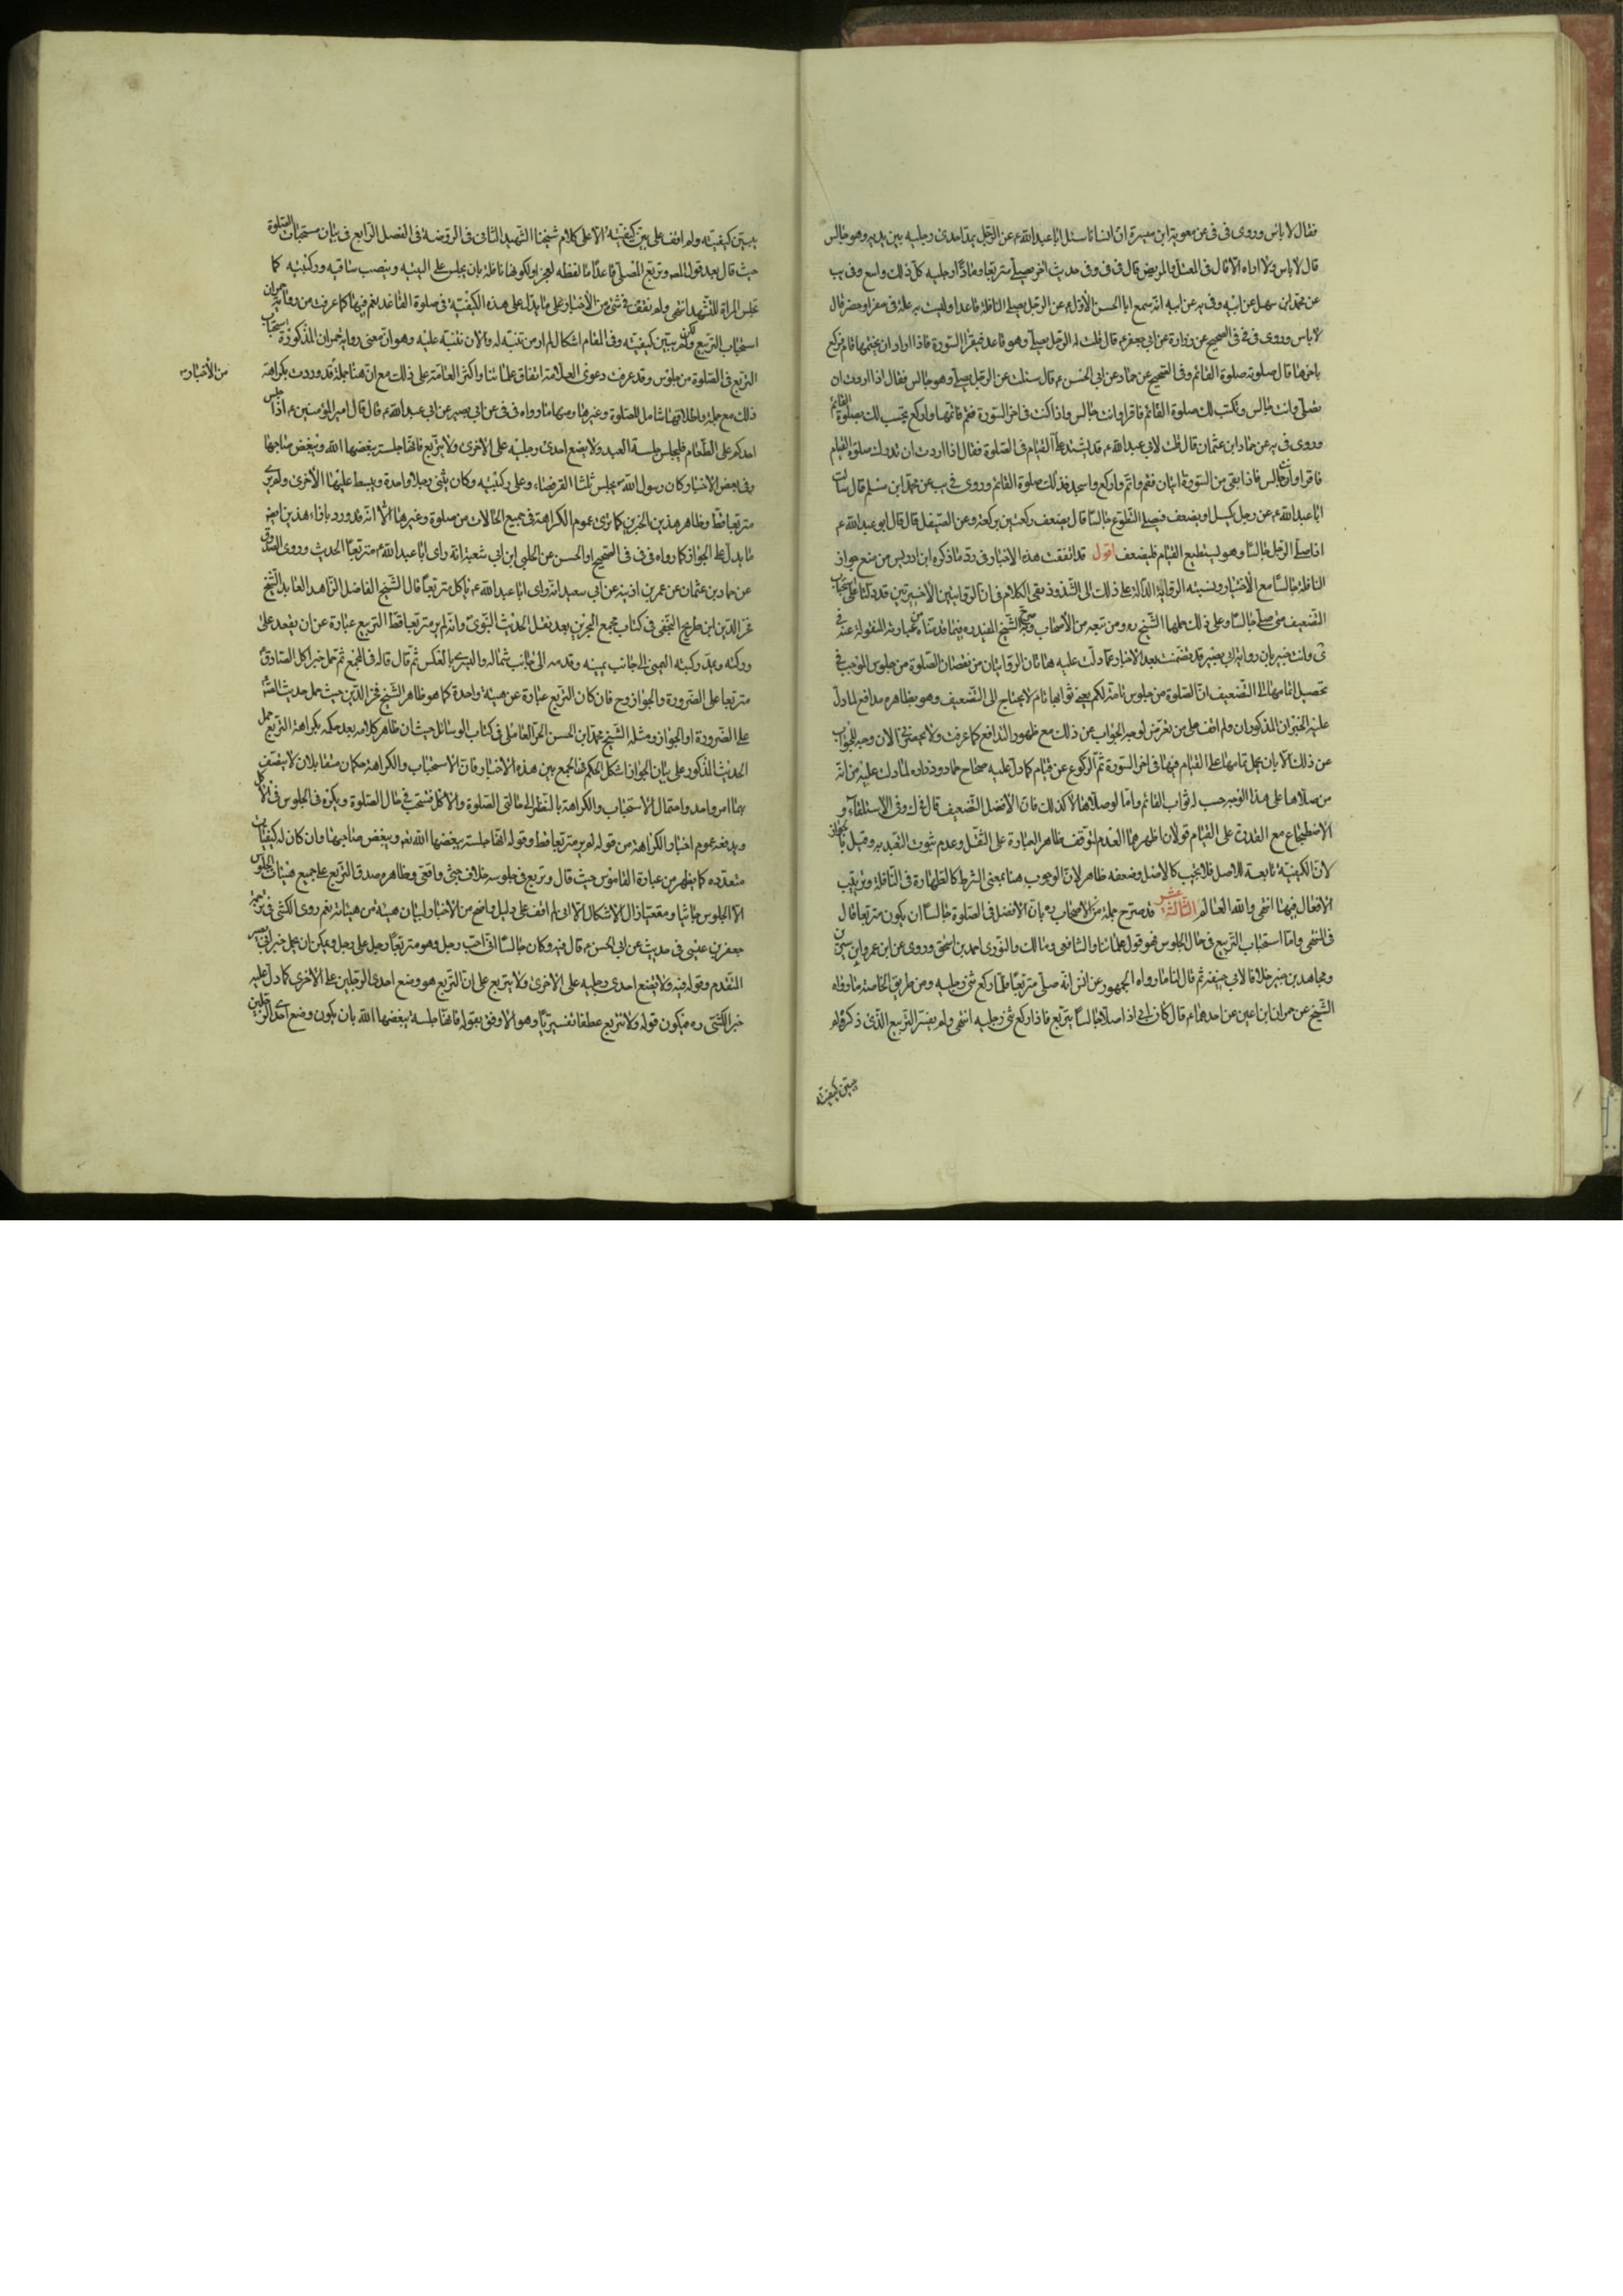 فقال لا باس وروى فى فى عن معوية ابن ميسرة ان انسانا سئل ابا عبد الله ع عن الرجل يمد احدى رجليه بين يديه وهو جالس
قال لا باس ولا اراه الا قال فى المعتل والمريض قال فى ف وفى حديث اخر يصلى متربعا ومادا رجليه كل ذلك واسع وفى يب
عن محمد ابن سهل عن ابيه وفى يه عن ابيه انه سمع ابا الحسن الاول ع عن الرجل يصلى النافلة قاعدا وليست به علة فى سفر او حضر قال
لا باس وروى فى فى فى الصحيح عن زرارة عن ابى جعفر ع قال قلت له الرجل يصلى وهو قاعد فيقرا السورة فاذا اراد ان يختمها قام فركع
باخرها قال صلوته صلوة القائم وفى الصحيح عن حماد عن ابى الحسن ع قال سئلت عن الرجل يصلى وهو جالس فقال اذا اردت ان
تصلى وانت جالس وتكتب لك صلوة القائم فاقرا وانت جالس واذا كنت فى اخر السورة فقم فاتمها واركع تحسب لك بصلوة القائم
وروى فى يه عن حماد ابن عثمان قال قلت لابى عبد الله ع قد يشتد على القيام فى الصلوة فقال اذا اردت ان تدرك صلوة القيام
فاقرا وانت جالس فاذا بقى من السورة ايتان فقم واتم واركع واسجد فذلك صلوة القائم وروى فى يب عن محمد ابن مسلم قال سئلت
ابا عبد الله ع عن رجل يكسل او يضعف فيصلى التطوع جالسا قال يضعف ركعتين بركعة وعن الصيقل قال قال ابو عبد الله ع
اذا صلى الرجل جالسا وهو يستطيع القيام فليضعف اقول قد اتفقت هذه الاخبار فى رد ما ذكره ابن ادريس من منع جواز
النافلة جالسا مع الاختيار ونسبته الرواية الدالة على ذلك الى الشذوذ بقى الكلام فى ان الروايتين الاخيرتين قد دلتا على استحباب
التضعيف متى صلى جالسا وعلى ذلك حملها الشيخ ره ومن تبعه من الاصحاب وصرح الشيخ المفيد ره فيما قدمناه من عبارته المنقولة عنه فى
ئى وانت خبير بان رواية ابى بصير قد تضمنت بعد الاخبار عما دلت عليه هاتان الروايتان من نقصان الصلوة من جلوس الموجب فى
تحصيل اتمامها الى التضعيف ان الصلوة من جلوس تامة لكم يعنى ثوابها تام لا يحتاج الى التضعيف وهو بظاهره مدافع لما دل
عليه الخبران المذكوران ولم اقف على من تعرض لوجه الجواب عن ذلك مع ظهور التدافع كما عرفت ولا يحضرنى الان وجه للجواب
عن ذلك الا بان يحمل تمامها على القيام فيها فى اخر السورة ثم الركوع عن قيام كما دل عليه صحاح حماد وزرارة لما دلت عليه من انه
من صلاها على هذا الوجه حسب له ثواب القائم واما لو صلاها لا كذلك فان الافضل التضعيف قال فى ك وفى الاستلقاء و
الاضطجاع مع القدرة على القيام قولان اظهرهما العدم لتوقف ظاهر العبارة على النقل وعدم ثبوت التعبد به وقيل بالجواز
لان الكيفية تابعة للاصل فلا يجب كالاصل وضعفه ظاهر لان الوجوب هنا بمعنى الشرط كالطهارة فى النافلة وترتيب
الافعال فيها انتهى والله العالم الثالثة عشر قد صرح جملة من الاصحاب ره بان الافضل فى الصلوة جالسا ان يكون متربعا قال
فى المنتهى واما استحباب التربيع فى حال الجلوس فهو قول علمائنا والشافعى ومالك والثورى احمد بن اسحق وروى عن ابن عمر وابن سيرين
ومجاهد بن جبير خلافا لابى حنيفة ثم قال لنا ما رواه الجمهور عن انس انه صلى متربعا فلما ركع ثنى رجليه ومن طريق الخاصة ما رواه
الشيخ عن حمران ابن اعين عن احدهما ع قال كان ابى اذا صلى جالسا يتربع فاذا ركع ثنى رجليه انتهى ولم يفسر التربيع الذى ذكره ولم
يبين كيفيته
يبين كيفيته ولم اقف على من بين كيفيته الا على كلام شيخنا الشهيد الثانى فى الروضة فى الفصل الرابع فى بيان مستحبات الصلوة
حيث قال بعد قول المصنف وتربع المصلى قاعدا ما لفظه لعجز او لكونها نافلة بان يجلس على اليتيه وينصب ساقيه وركبتيه كما
تجلس المراة للتشهد انتهى ولم نقف فى شئ من الاخبار على ما يدل على هذه الكيفية فى صلوة القاعد نعم فيها كما عرفت من رواية حمران
استحباب التربيع ولكن لم يبين كيفيته وفى المقام اشكال لم ار من تنبه له ولا من نبه عليه وهو ان معنى رواية حمران المذكورة استحباب
التربع فى الصلوة من جلوس وقد عرفت دعوى العلامة اتفاق علمائنا واكثر العامة على ذلك مع ان هنا جملة من الاخبار قد وردت بكراهة
ذلك مع جملة واطلاقها شامل للصلوة وغيرها ومنها ما رواه فى فى عن ابى بصير عن ابى عبد الله ع قال قال امير المؤمنين ع اذا جلس
احدكم على الطعام فليجلس جلسة العبد ولا يضع احدى رجليه على الاخرى ولا يتربع فانها جلسة يبغضها الله ويبغض صاحبها
وفى بعض الاخبار كان رسول الله ص يجلس ثلثا القرفصاء وعلى ركبتيه وكان يثنى رجلا واحدة ويبسط عليها الاخرى ولم ير
متربعا قط وظاهر هذين الخبرين كما ترى عموم الكراهة فى جميع الحالات من صلوة وغيرها الا انه قد ورد بازاء هذين ايضا
ما يدل على الجواز كما رواه فى فى فى الصحيح او الحسن عن الحلبى ابن ابى شعبة انه راى ابا عبد الله ع متربعا الحديث وروى الصدوق
عن حماد بن عثمان عن عمر بن اذينة عن ابى سعيد انه راى ابا عبد الله ع ياكل متربعا قال الشيخ الفاضل الزاهد العابد الشيخ
فخر الدين ابن طريح النجفى فى كتاب مجمع البحرين بعد نقل الحديث النبوى وانه لم ير متربعا قط التربيع عبارة عن ان يقعد على
وركيه ويمد ركبته اليمنى الى جانب يمينه وقدمه الى جانب شماله واليسرى بالعكس ثم قال قاله فى المجمع ثم حمل خبر اكل الصادق ع
متربعا على الضرورة والجواز وح فان كان التربيع عبارة عن هيئة واحدة كما هو ظاهر الشيخ فخر الدين حيث حمل حديث الصادق ع
على الضرورة او الجواز ومثله الشيخ محمد ابن الحسن الحر العاملى فى كتاب الوسائل حيث ان ظاهر كلامه بعد حكمه بكراهة التربيع حمل
الحديث المذكور على بيان الجواز اشكل الحكم فى الجمع بين هذه الاخبار فان الاستحباب والكراهة حكمان متقابلان لا يتصف
بهما امر واحد واحتمال الاستحباب والكراهة بالنظر الى حالتى الصلوة والاكل فيستحب فى حال الصلوة ويكره فى الجلوس فى الاكل
ويدفعه عموم اخبار الكراهة من قوله لم ير متربعا قط وقوله انها جلسة يبغضها الله تعه ويبغض صاحبها وان كان له كيفيات
متعدده كما يظهر من عبارة القاموس حيث قال وتربع فى جلوسه خلاف جثى واقعى وظاهره صدق التربع على جميع هيئات الجلوس
الا الجلوس جاثيا ومقعيا زال الاشكال الا انى لم اقف على دليل واضح من الاخبار لبيان هيئة من هيئاته نعم روى الكشى فى ترجمة
جعفر بن عيسى فى حديث عن ابى الحسن ع قال فيه وكان جالسا الى جنب رجل وهو متربعا رجل على رجل ويمكن ان يحمل خبر ابى بصير
المتقدم وقوله فيه ولا يضع احدى رجليه على الاخرى ولا يتربع على ان التربع هو وضع احدى الرجلين على الاخرى كما دل عليه
خبر الكشى ره فيكون قوله ولا يتربع عطفا تفسيريا وهو الاوفق بقوله فانها جلسة يبغضها الله بان يكون وضع احدى الرجلين
من الاخبار